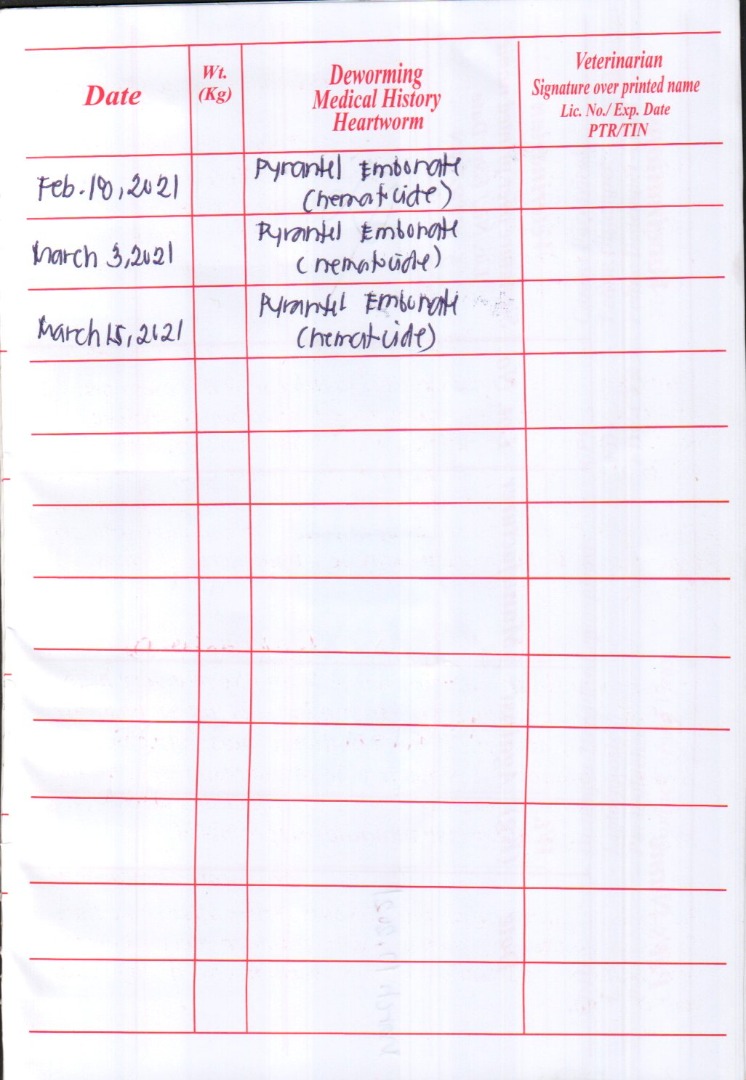 Date
Wt.
(Kg)
Deworming
Medical History
Heartworm
Veterinarian
Signature over printed name
Lic. No./ Exp. Date
PTR/TIN
Feb. 18, 2021
Pyrantel Embonate
(nematicide)
March 3, 2021
Pyrantel Embonate
(nematicide)
March 15, 2021
Pyrantel Embonate
(nematicide)